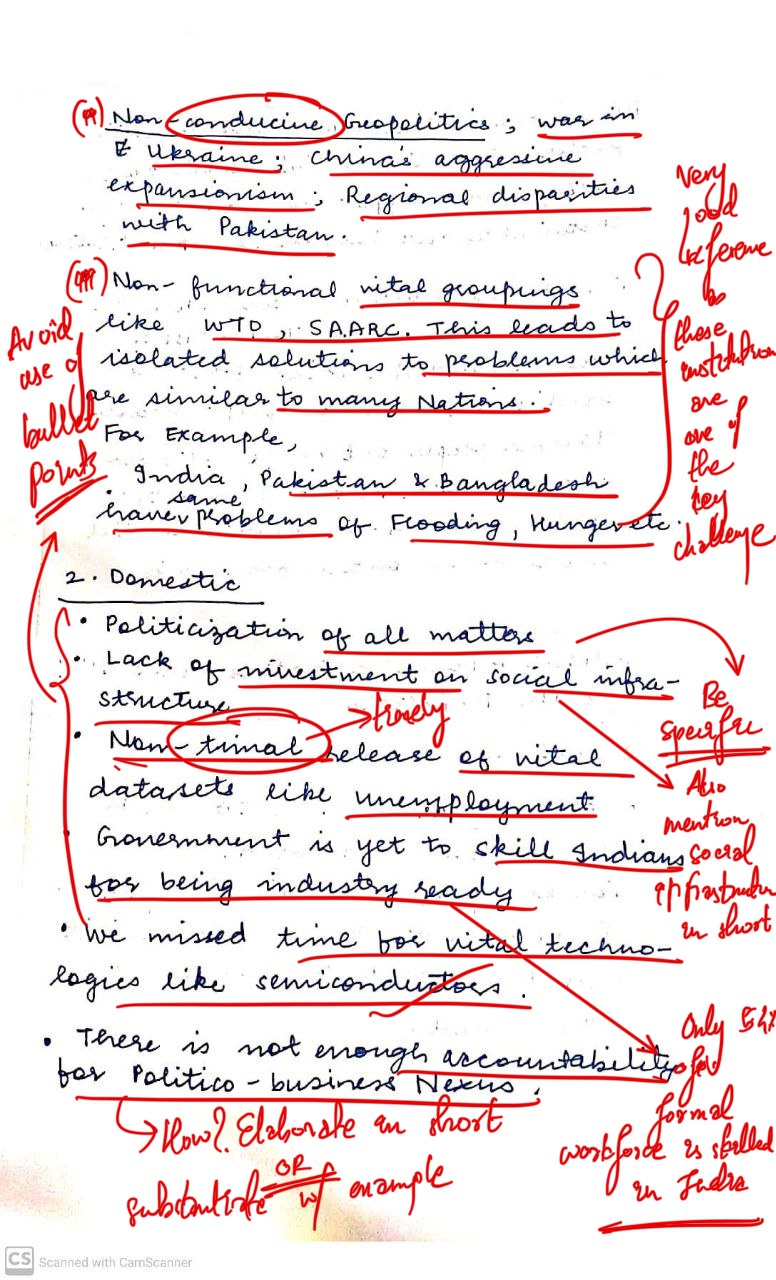 (ii) Non-conducive Geopolitics; war in
Ukraine; China's aggressive
expansionism; Regional disparities
with Pakistan.
Very
good
reference
as
these
institutions
are
one of
the
key
challenge
(iii) Non-functional vital groupings
like WTO, SAARC. This leads to
isolated solutions to problems which
are similar to many Nations.
For Example,
· India, Pakistan & Bangladesh
same
have problems of Flooding, Hunger etc.
Avoid
use of
bullet
points
2. Domestic
• Politicization of all matters
• Lack of investment on social infra-
structure
• Non-timal release of vital
timely
datasets like unemployment
• Government is yet to skill Indians
for being industry ready
• We missed time for vital techno-
logies like semiconductors.
• There is not enough accountability
for Politico-business Nexus.
Be
specific
Also
mention
social
infrastructure
in short
Only
of
formal
workforce is skilled
in India
How? Elaborate in short
OR
substantiate w/ example
CS Scanned with CamScanner